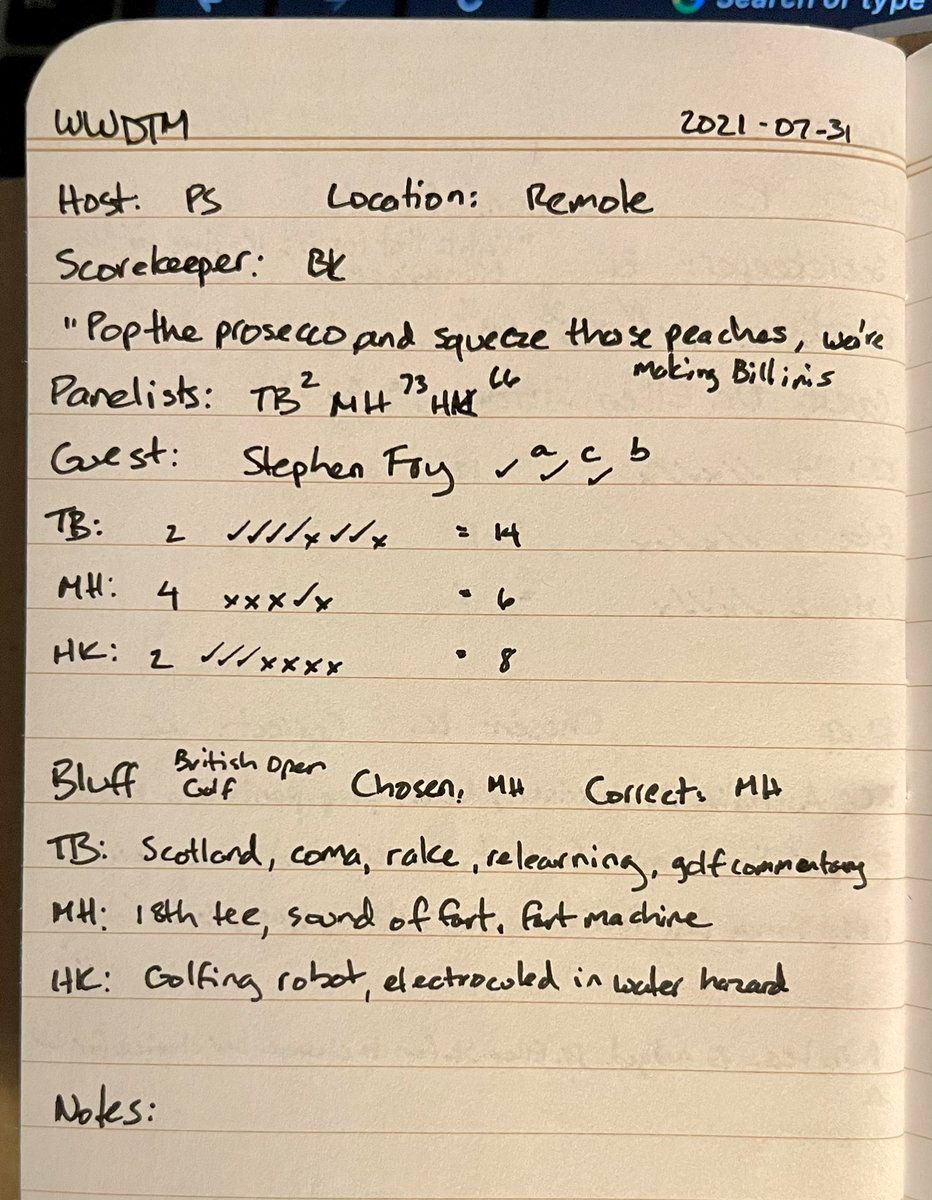 Search or type
WWDTM 2021-07-31
Host: PS Location: Remote
Scorekeeper: BK
"Pop the prosecco and squeeze those peaches, we're
making Billinis
Panelists: TB² MH⁷³ HK⁶⁶
Guest: Stephen Fry ✓ a✓, c✓, b
TB: 2 ✓✓✓✓x✓✓x = 14
MH: 4 xxx✓x = 6
HK: 2 ✓✓✓xxxx = 8
Bluff British Open Golf Chosen: MH Correct: MH
TB: Scotland, coma, rake, relearning, golf commentary
MH: 18th tee, sound of fart, fart machine
HK: Golfing robot, electrocuted in water hazard
Notes: